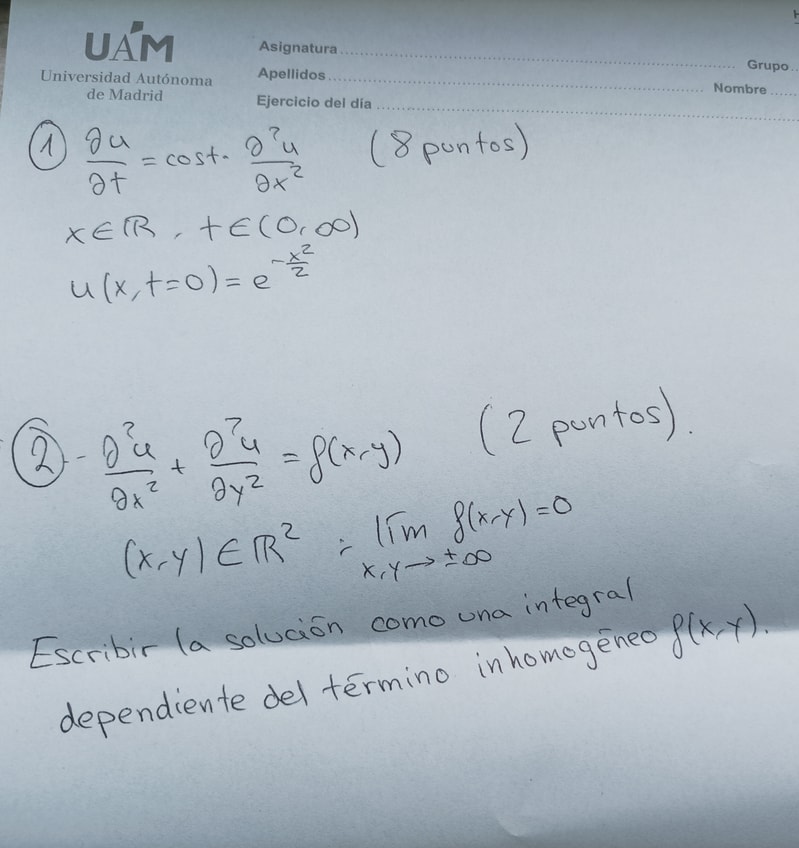 H
UAM
Universidad Autónoma
de Madrid
Asignatura
Grupo
Apellidos
Nombre
Ejercicio del día
① ∂u/∂t = cost· ∂²u/∂x² (8 puntos)
x∈ℝ, t∈(0,∞)
u(x,t=0) = e^(-x²/2)
② - ∂²u/∂x² + ∂²u/∂y² = f(x,y) (2 puntos).
(x,y)∈ℝ² ; lím f(x,y)=0
x,y→±∞
Escribir la solución como una integral
dependiente del término inhomogéneo f(x,y).